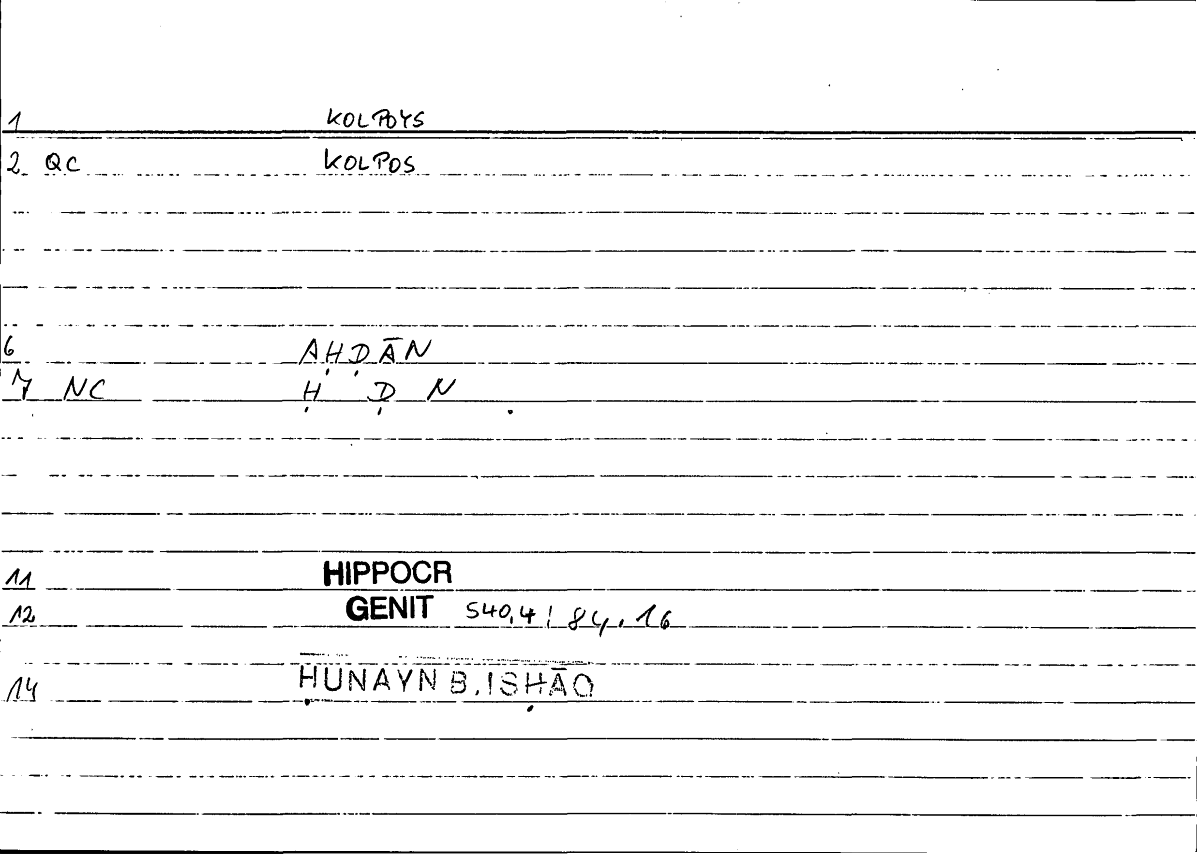 1 KOLPOYS
2 QC KOLPOS
6 AḤḌĀN
7 NC Ḥ Ḍ N
11 HIPPOCR
12 GENIT 540,4 / 84.16
14 ḤUNAYN B. ISḤĀQ